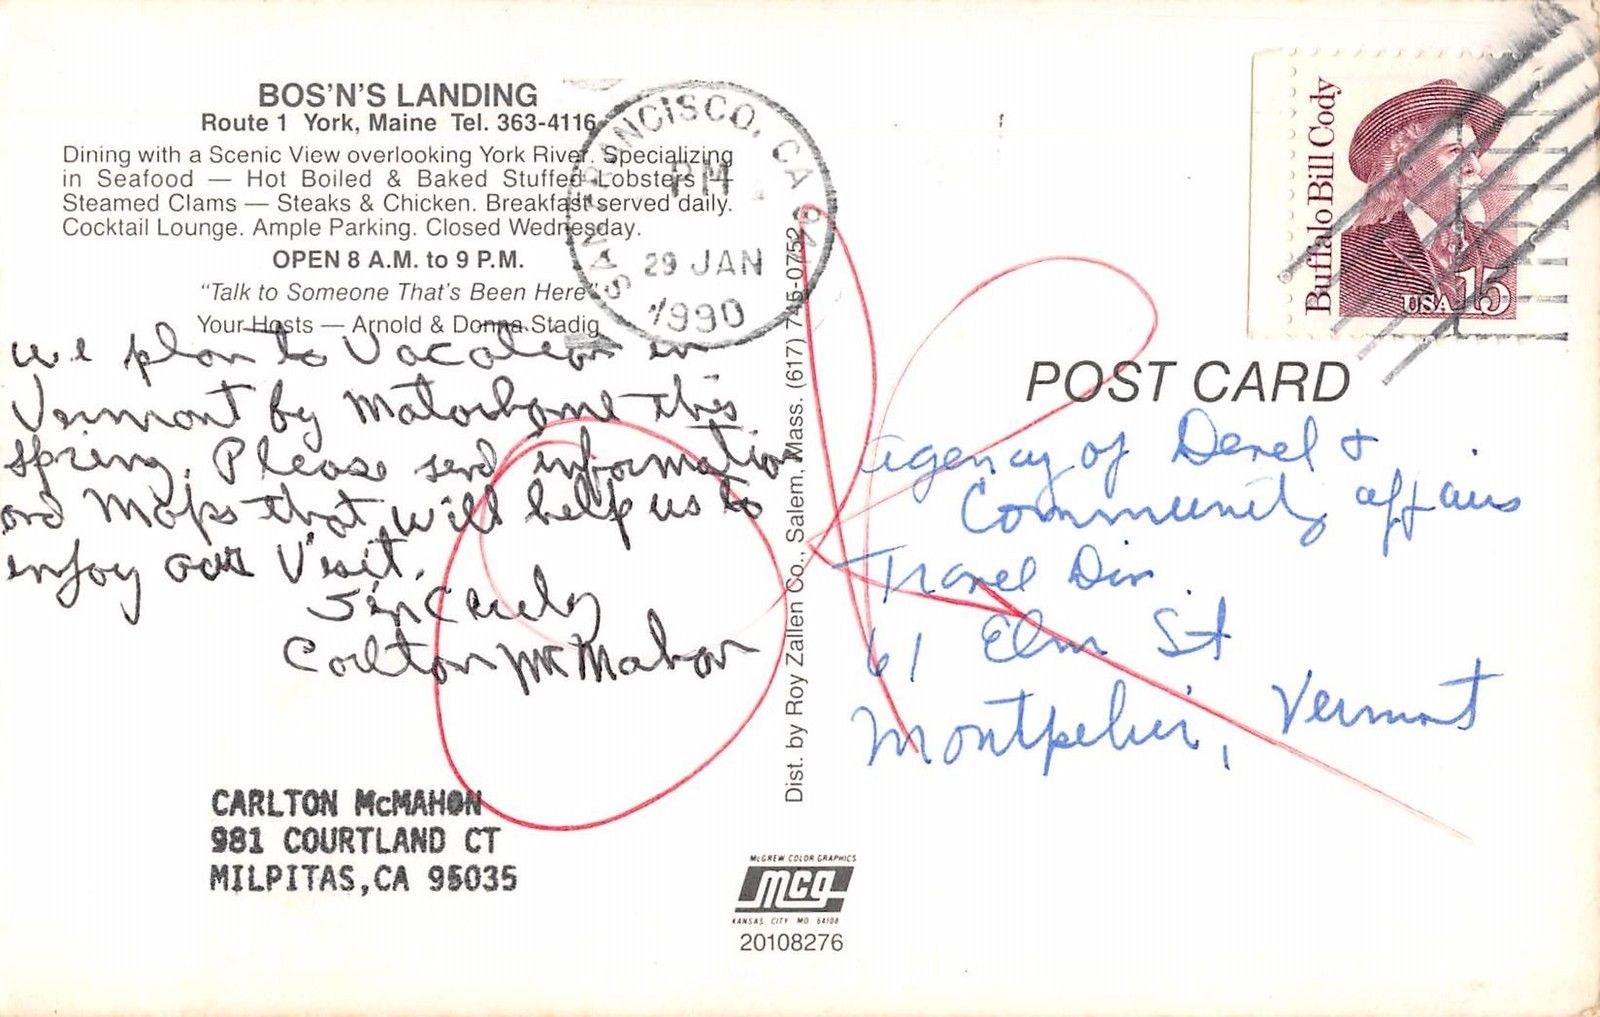 BOS'N'S LANDING
Route 1 York, Maine Tel. 363-4116
Dining with a Scenic View overlooking York River. Specializing
in Seafood — Hot Boiled & Baked Stuffed Lobsters —
Steamed Clams — Steaks & Chicken. Breakfast served daily.
Cocktail Lounge. Ample Parking. Closed Wednesday.
OPEN 8 A.M. to 9 P.M.
"Talk to Someone That's Been Here"
Your Hosts — Arnold & Donna Stadig
we plan to Vacation in
Vermont by Motorhome this
Spring. Please send information
and Maps that will help us to
enjoy our Visit.
Sincerely
Carlton McMahon
CARLTON McMAHON
981 COURTLAND CT
MILPITAS, CA 95035
SAN FRANCISCO, CA 941
PM
29 JAN
1990
Dist. by Roy Zallen Co., Salem, Mass. (617) 745-0752
McGREW COLOR GRAPHICS
mcg
KANSAS CITY MO 64108
20108276
Buffalo Bill Cody
USA 15
POST CARD
Agency of Devel &
Community affairs
Travel Div.
61 Elm St
Montpelier, Vermont